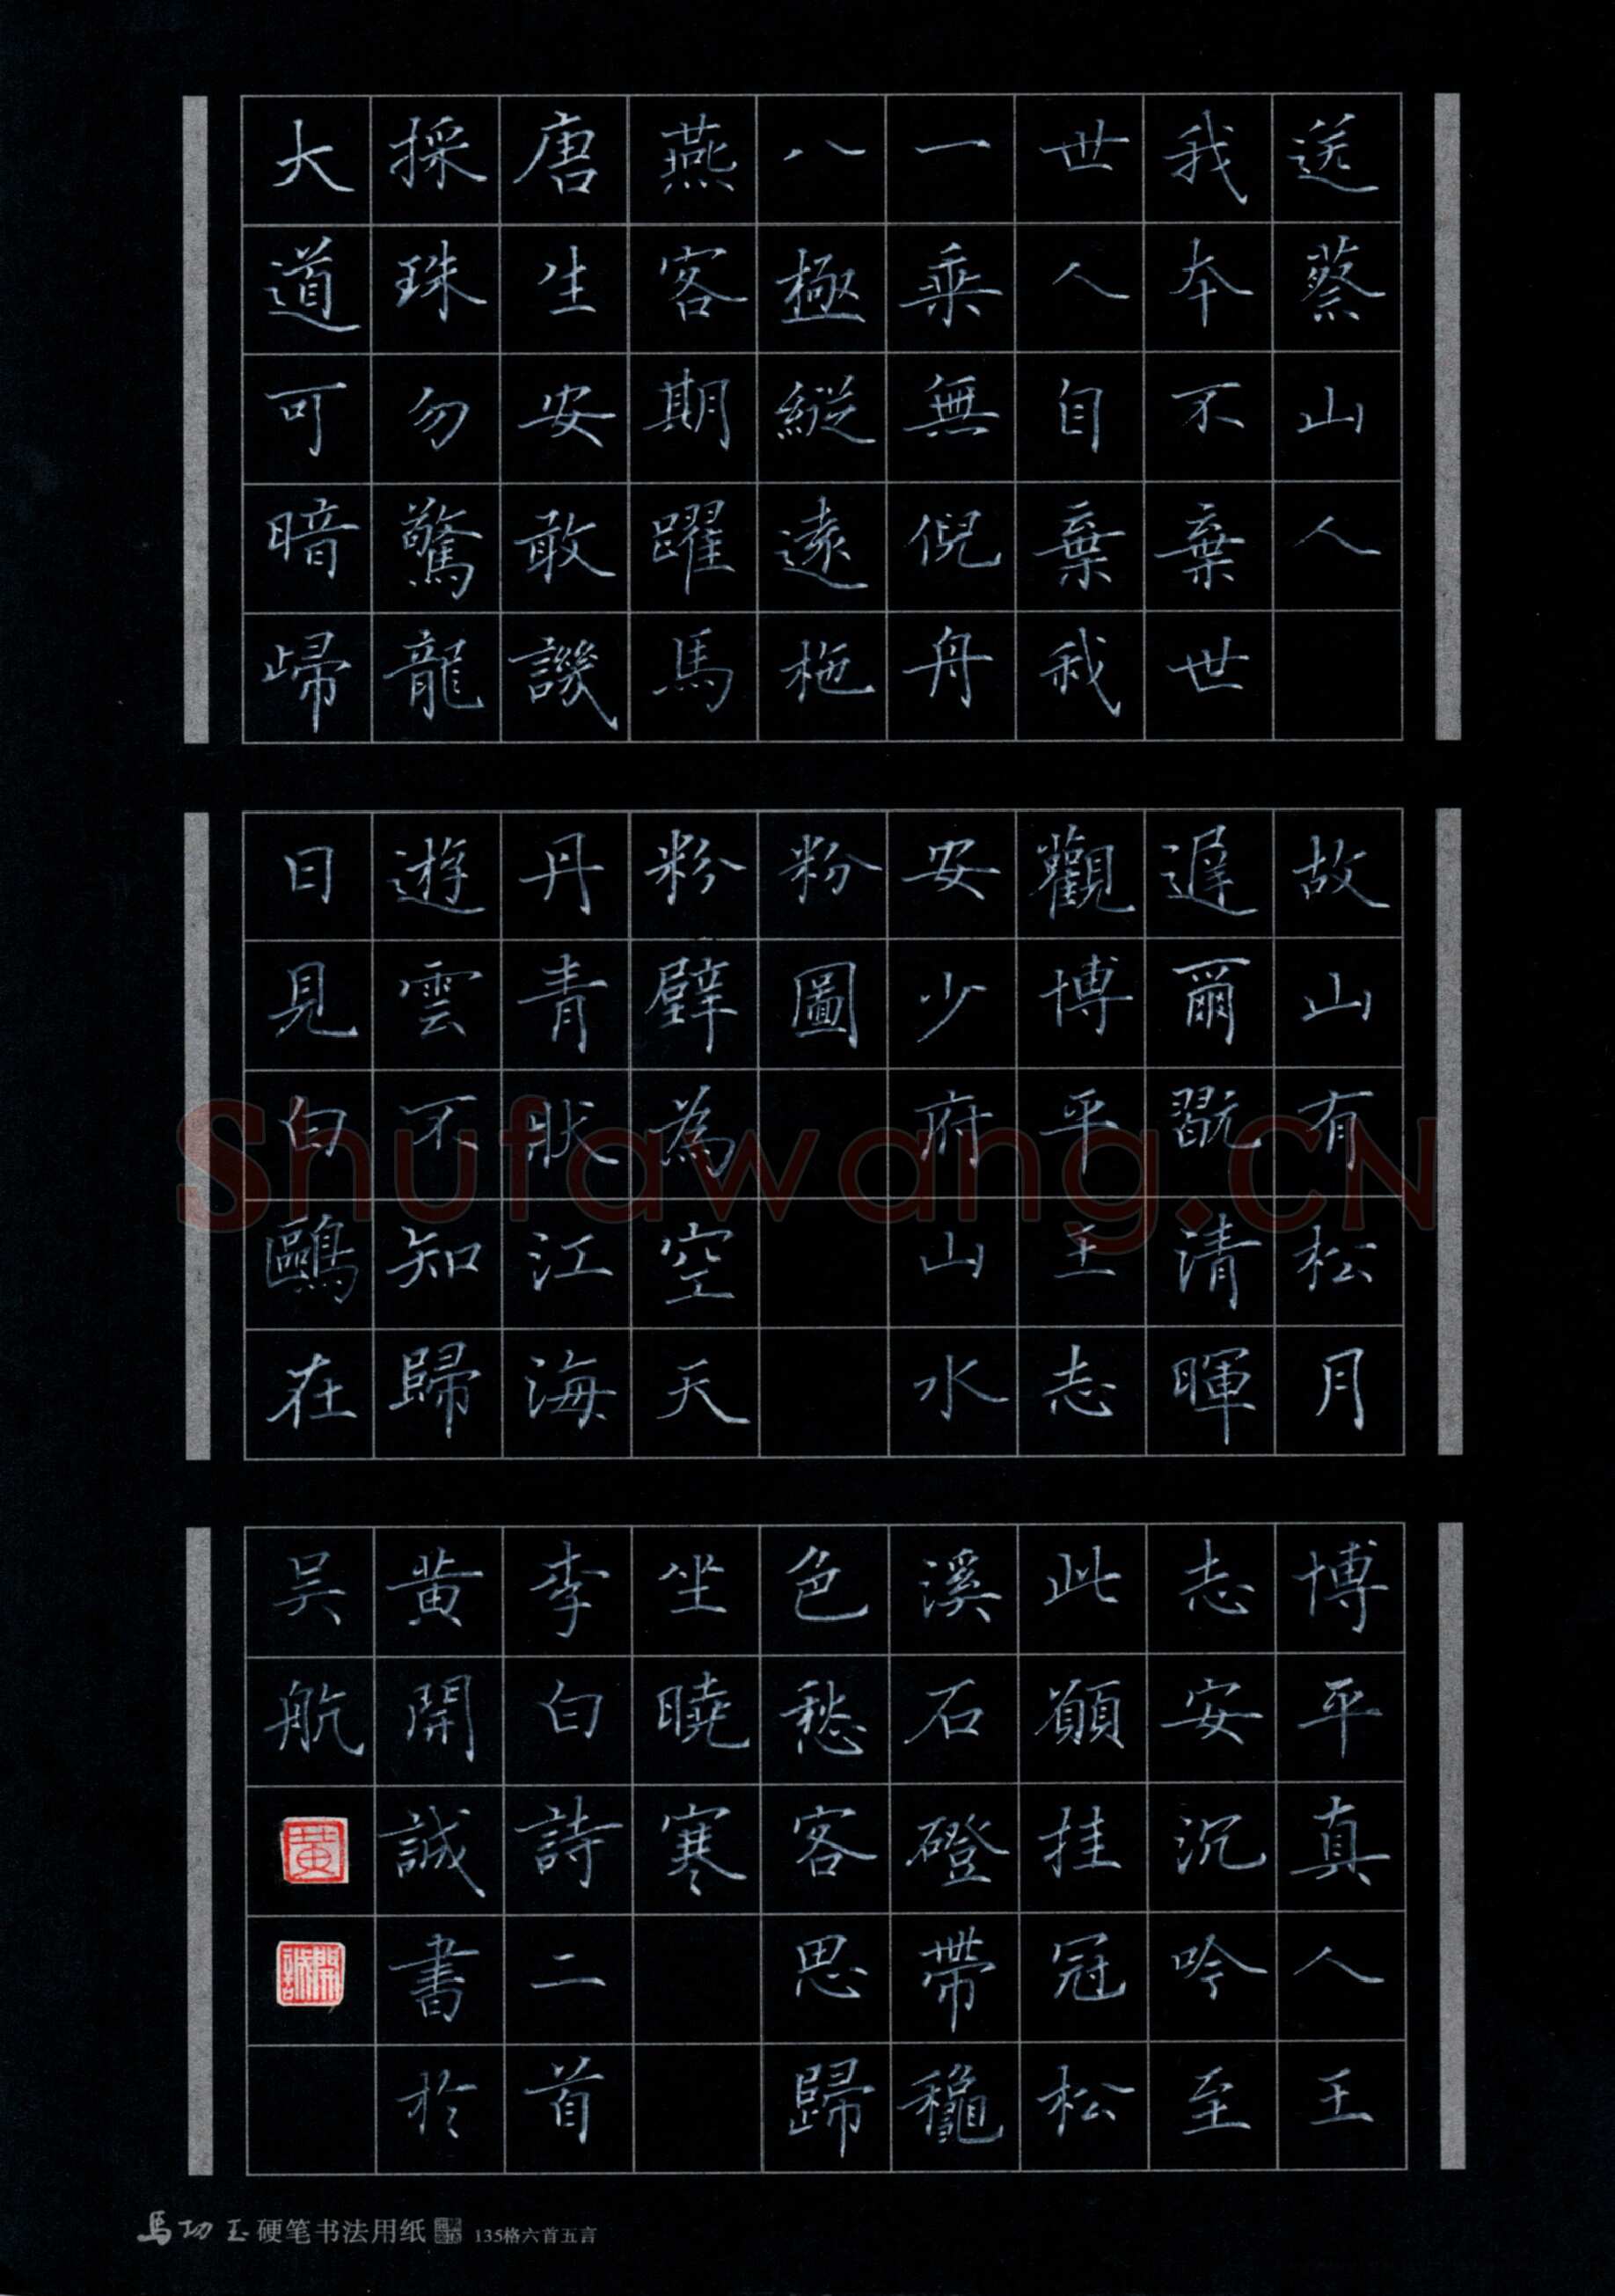 送蔡山人
我本不棄世
世人自棄我
一乘無倪舟
八極縱遠柂
燕客期躍馬
唐生安敢譏
採珠勿驚龍
大道可暗歸
故山有松月
遲爾翫清暉
觀博平王志
安少府山水
粉圖
粉壁為空天
丹青狀江海
遊雲不知歸
日見白鷗在
博平真人王
志安沉吟至
此願挂冠松
溪石磴帶穐
色愁客思歸
坐曉寒
李白詩二首
黃開誠書於
吳航
黃
開誠
Shufawang.CN
馬功玉硬笔书法用纸 135格六首五言